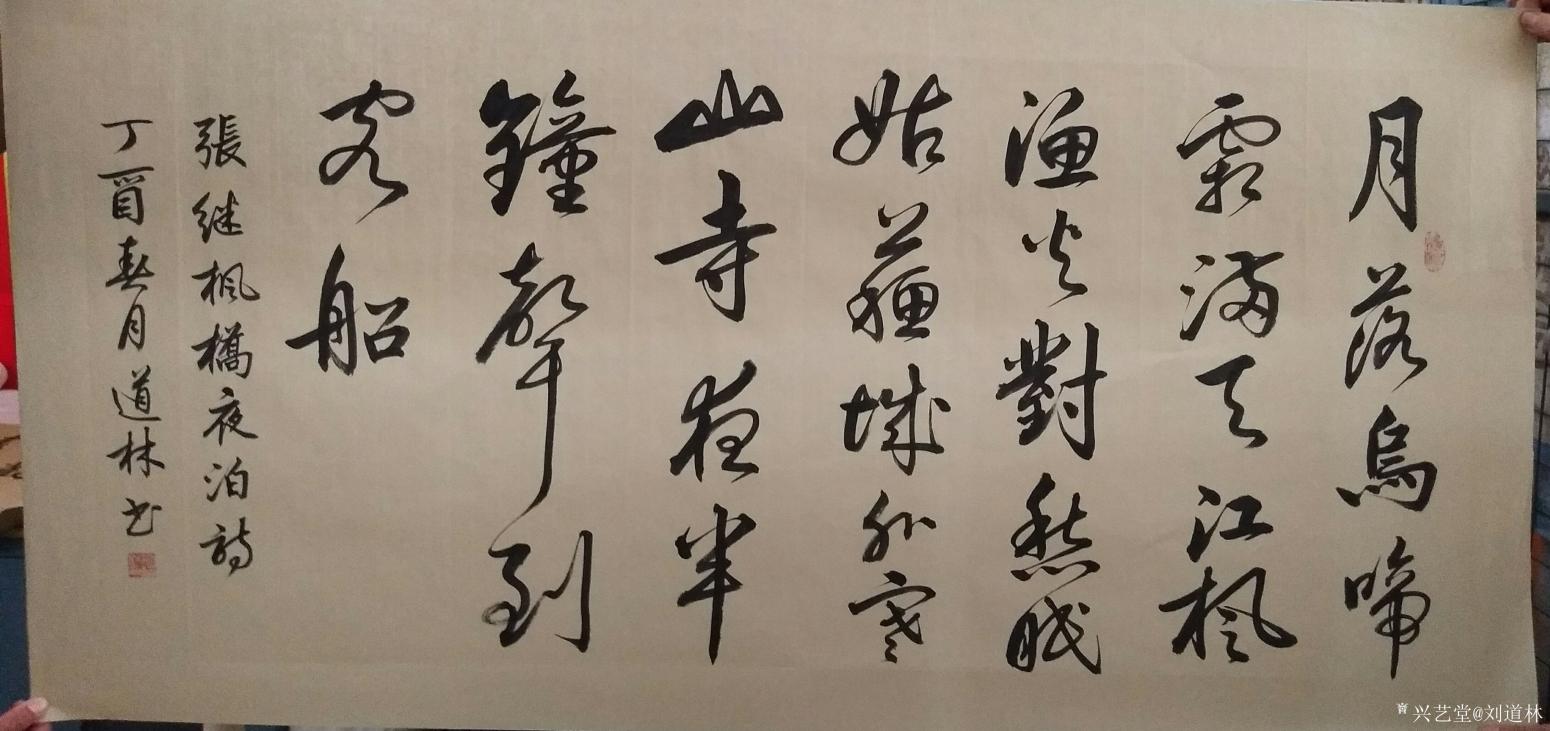 月落烏啼
霜滿天江楓
漁火對愁眠
姑蘇城外寒
山寺夜半
鐘聲到
客船
張继楓橋夜泊詩
丁酉春月道林书
兴艺堂@刘道林